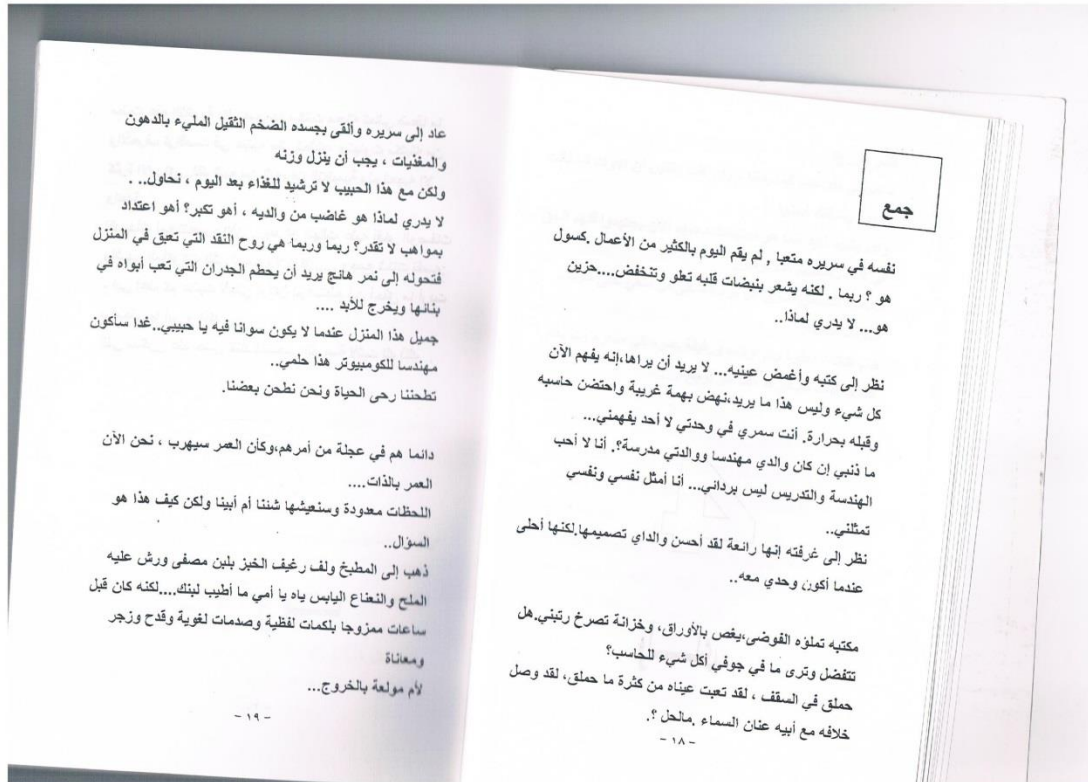 جمع
نفسه في سريره متعبا , لم يقم اليوم بالكثير من الأعمال .كسول
هو ؟ ربما . لكنه يشعر بنبضات قلبه تعلو وتنخفض....حزين
هو... لا يدري لماذا..
نظر إلى كتبه وأغمض عينيه... لا يريد أن يراها،إنه يفهم الآن
كل شيء وليس هذا ما يريد،نهض بهمة غريبة واحتضن حاسبه
وقبله بحرارة. أنت سمري في وحدتي لا أحد يفهمني...
ما ذنبي إن كان والدي مهندسا ووالدتي مدرسة؟. أنا لا أحب
الهندسة والتدريس ليس برداني... أنا أمثل نفسي ونفسي
تمثلني..
نظر إلى غرفته إنها رائعة لقد أحسن والداي تصميمها.لكنها أحلى
عندما أكون وحدي معه..
مكتبه تملؤه الفوضى،يغص بالأوراق، وخزانة تصرخ رتبني.هل
تتفضل وترى ما في جوفي أكل شيء للحاسب؟
حملق في السقف ، لقد تعبت عيناه من كثرة ما حملق، لقد وصل
خلافه مع أبيه عنان السماء .مالحل ؟.
- ١٨ -
عاد إلى سريره وألقى بجسده الضخم الثقيل المليء بالدهون
والمغذيات ، يجب أن ينزل وزنه
ولكن مع هذا الحبيب لا ترشيد للغذاء بعد اليوم ، نحاول.. .
لا يدري لماذا هو غاضب من والديه ، أهو تكبر؟ أهو اعتداد
بمواهب لا تقدر؟ ربما وربما هي روح النقد التي تعبق في المنزل
فتحوله إلى نمر هائج يريد أن يحطم الجدران التي تعب أبواه في
بنائها ويخرج للأبد ....
جميل هذا المنزل عندما لا يكون سوانا فيه يا حبيبي..غدا سأكون
مهندسا للكومبيوتر هذا حلمي..
تطحننا رحى الحياة ونحن نطحن بعضنا.
دائما هم في عجلة من أمرهم،وكأن العمر سيهرب ، نحن الآن
العمر بالذات....
اللحظات معدودة وسنعيشها شئنا أم أبينا ولكن كيف هذا هو
السؤال..
ذهب إلى المطبخ ولف رغيف الخبز بلبن مصفى ورش عليه
الملح والنعناع اليابس ياه يا أمي ما أطيب لبنك....لكنه كان قبل
ساعات ممزوجا بلكمات لفظية وصدمات لغوية وقدح وزجر
ومعاناة
لأم مولعة بالخروج...
- ١٩ -